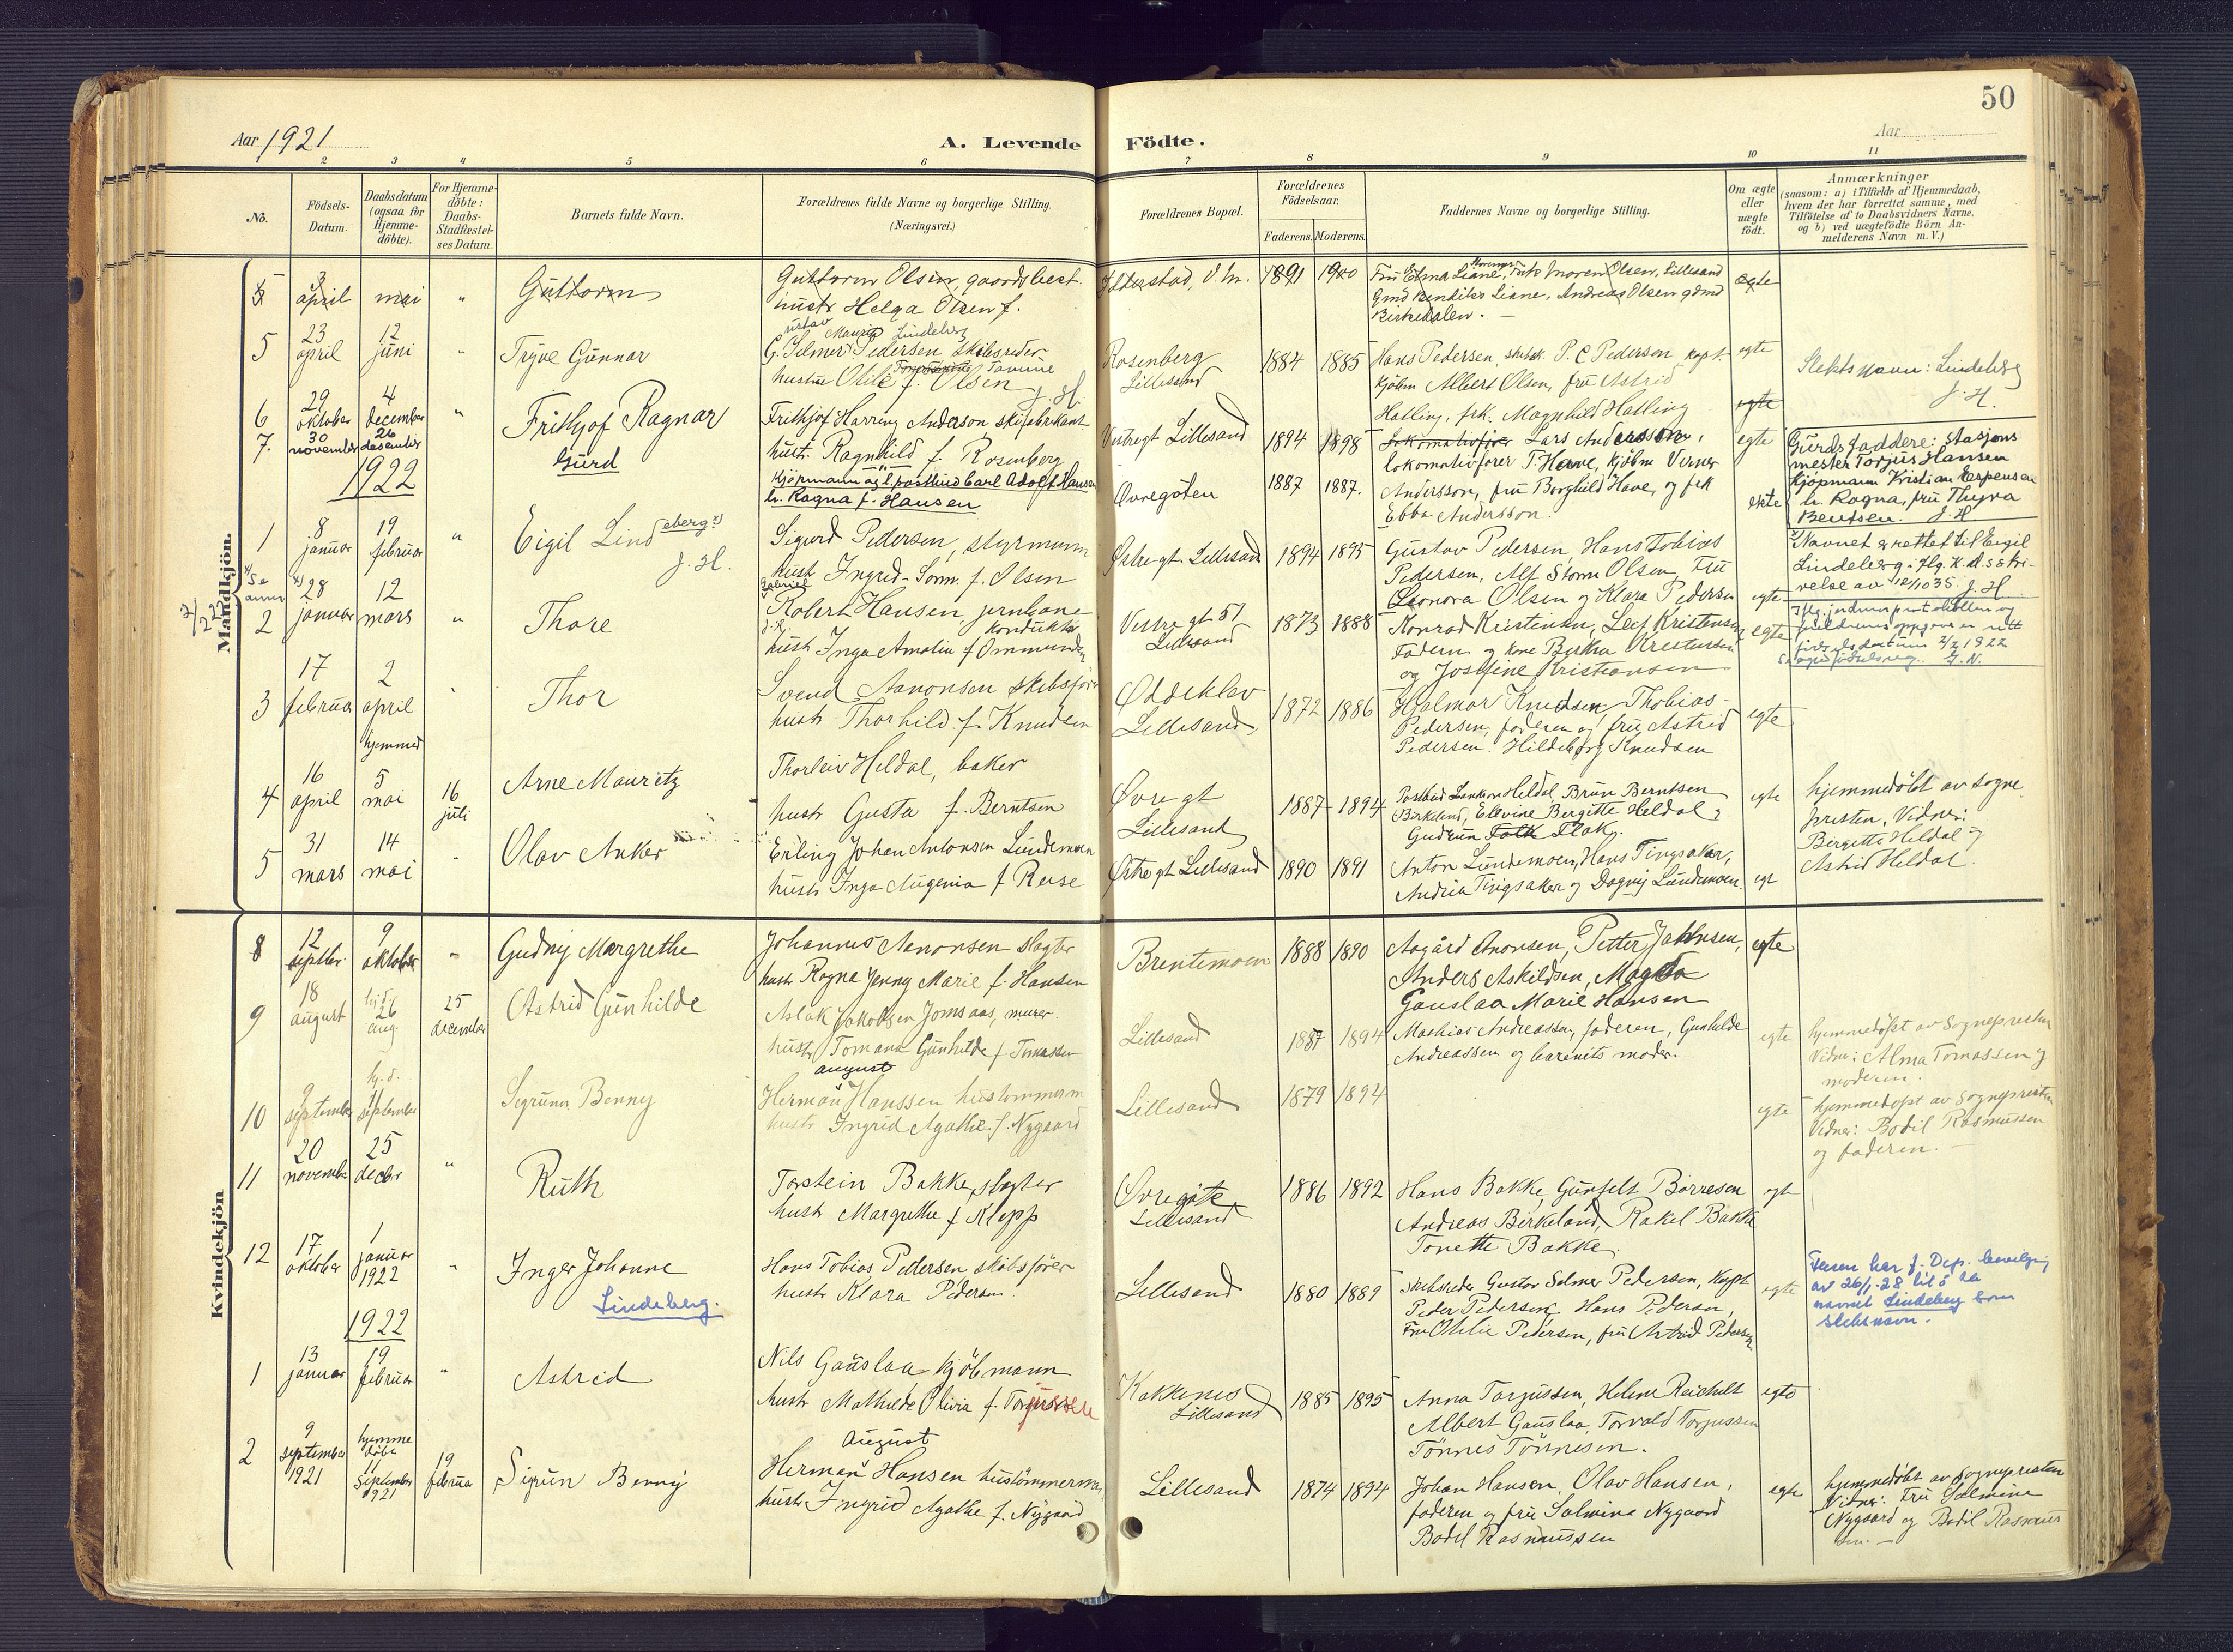 50
Aar 1921
A. Levende Födte.
Aar
1 2 3 4 5 6 7 8 9 10 11
No.
Födsels-
Datum.
Daabsdatum
(ogsaa for
Hjemme-
döbte).
For Hjemme-
döbte:
Daabs-
Stadfæstel-
ses Datum.
Barnets fulde Navn.
Forældrenes fulde Navne og borgerlige Stilling.
(Næringsvei.)
Forældrenes Bopæl.
Forældrenes
Födselsaar.
Faderens. Moderens.
Faddernes Navne og borgerlige Stilling.
Om ægte
eller
uægte
födt.
Anmærkninger
(saasom: a) i Tilfælde af Hjemmedaab,
hvem der har forrettet samme, med
Tilföielse af to Daabsvidners Navne.
og b) ved uægtefödte Börn An-
melderens Navn m. V.)
Mandkjön.
3
april mai " Guttorm
Guttorm Olsen, gaardsbest.
hustr Helga Olsen f.
1891 1900
Lillesand
Andreas Olsen gdmd
Birkedalen.
egte
5
23 april
12 juni
"
Tryve Gunnar
G. Selmer Pedersen skibsreder
hustru Otilie f. Olsen
Rosenberg
Lillesand
1884 1885
Hans Pedersen, P. C Pedersen kapt.
kjöbm Albert Olsen, fru Astrid
Halling, frk. Magnhild Halling
egte
Slektsnavn: Lindeberg
J. H.
6
29 oktober
4 december
"
Frithjof Ragnar
Frithjof Harring Anderson skofabrikant
hustr. Ragnhild f. Rosenberg
Vestregt Lillesand
1894 1898
Lars Andersson,
lokomotivförer T. Have, kjöbm Verner
Andersson, fru Borghild Have, og frk
Ebba Andersson.
egte
7.
30 november
26 desember
Gurd
Kjöpmann og postbud Carl Adolf Hansen
h. Ragna f. Hansen
Övregaten
1887 1887.
ekte
Gurds faddere: stasjons
mester Torjus Hansen
kjöpmann Kristian Espensen
h. Ragna, fru Thyra
Bentsen. J. H
1922
1
8 januar
19 februar
"
Eigil Lindeberg
J. H.
Sigurd Pedersen, styrmann
hust Ingrid f. Olsen
Östregt. Lillesand
1894 1895
Gustav Pedersen, Hans Tobias
Pedersen, Alf Storm Olsen, Fru
Leonora Olsen og Klara Pedersen
egte
Navnet er rettet til Eigil
Lindeberg iflg. K. d. s skri-
velse av 12/10 35. J. H.
2
28 januar
12 mars
"
Thore
Gabriel
Robert Hansen, jernbane
konduktör
hust Inga Amalia f Ommundsen
Vestregt 51
Lillesand
1873 1888
Konrad Kristensen, Leif Kristensen
Faderen og kone Berta Kristensen
og Josefine Kristiansen
egte
3
17 februar
2 april
"
Thor
Svend Aanonsen skibsförer
hustr. Thorhild f. Knudsen
Öddeklev
Lillesand
1872 1886
Hjalmar Knudsen, Thobias
Pedersen, faderen og fru Astrid
Pedersen. Hildeborg Knudsen
egte
4
16 april
hjemmed
5 mai
16 juli
Arne Mauritz
Thorleiv Heldal, baker
hustr Gusta f. Berntsen
Övregt
Lillesand
1887 1894
Heldal, Brun Berntsen
Birkeland, Ellevine Bergitte Heldal,
Gudrun Flak.
egte
hjemmedöbt av sogne
presten, Vidner:
Birgitte Heldal og
Astrid Heldal.
5
31 mars
14 mai
"
Olav Anker
Erling Johan Antonsen Lundemoen
hustr Inga Augenia f Reise
Östregt Lillesand
1890 1891
Anton Lundemoen, Hans Tingsaker,
Andrea Tingsaker og Dagny Lundemoen
egt
Kvindekjön
8
12 septbr.
9 oktober
"
Gudny Margrethe
Johannes Aanonsen slagter
hustr Ragna Jenny Marie f. Hansen
Brentemoen
1888 1890
Aagård Anonsen, Petter Jakobsen,
Anders Askildsen, Magda
Gauslaa Marie Hansen
egte
9
18 august
hj.d. 26 aug.
25 december
Astrid Gunhilde
Aslak Jakobsen Jomsaas, murer.
hustr Tomana Gunhilde f. Tomassen
Lillesand
1887 1894
Mathias Andreassen, faderen, Gunhilde
Andreassen og barnets moder.
egte
hjemmedöpt av Sognepresten
Vidner: Alma Tomassen og
moderen.
10
9 september
hj.d. september
Sigrunn Benny
august
Herman Hanssen hustömmerm
hustr Ingrid Agathe f. Nygaard
Lillesand
1879 1894
egte
hjemmedöpt av sognepresten
Vidner: Bodil Rasmussen
og faderen.
11
20 november
25 decbr
"
Ruth
Torstein Bakke, slagter
hustr Margrethe f Klepp
Övregate
Lillesand
1886 1892
Hans Bakke, Gunfelt Börresen
Andreas Birkeland, Rakel Bakke
Tonette Bakke.
egte
12
17 oktober
1 januar
1922
"
Inger Johanne
Lindeberg.
Hans Tobias Pettersen skibsförer
hustr Klara Pedersen
Lillesand
1880 1889
Skibsreder Gustav Selmer Pedersen, Kapt
Peder Pedersen, Hans Pedersen,
Fru Otilie Pedersen, fru Astrid Pedersen
egte
Faren har f. Dep. bevilgning
av 26/1-28 til å ta
navnet Lindeberg som
slektsnavn.
1922
1
13 januar
19 februar
"
Astrid
Nils Gauslaa kjöbmann
hustr Mathilde Olivia f. Torjussen
Kokkenes
Lillesand
1885 1895
Anna Torjussen, Helene Reichelt
Albert Gauslaa, Torvald Torjussen
Tönnes Tönnesen.
egte
2
9 september
1921
hjemme
döbt
11 september
1921
19 februar
Sigrun Benny
August
Herman Hansen hustömmerma
hustr Ingrid Agathe f. Nygaard
Lillesand
1874 1894
Johan Hansen, Olav Hansen,
faderen og fru Salmina Nygaard
Bodil Rasmussen
egte
hjemmedöbt av sognepresten
Vidner: Fru Salmine
Nygaard og Bodil Rasmus
sen.